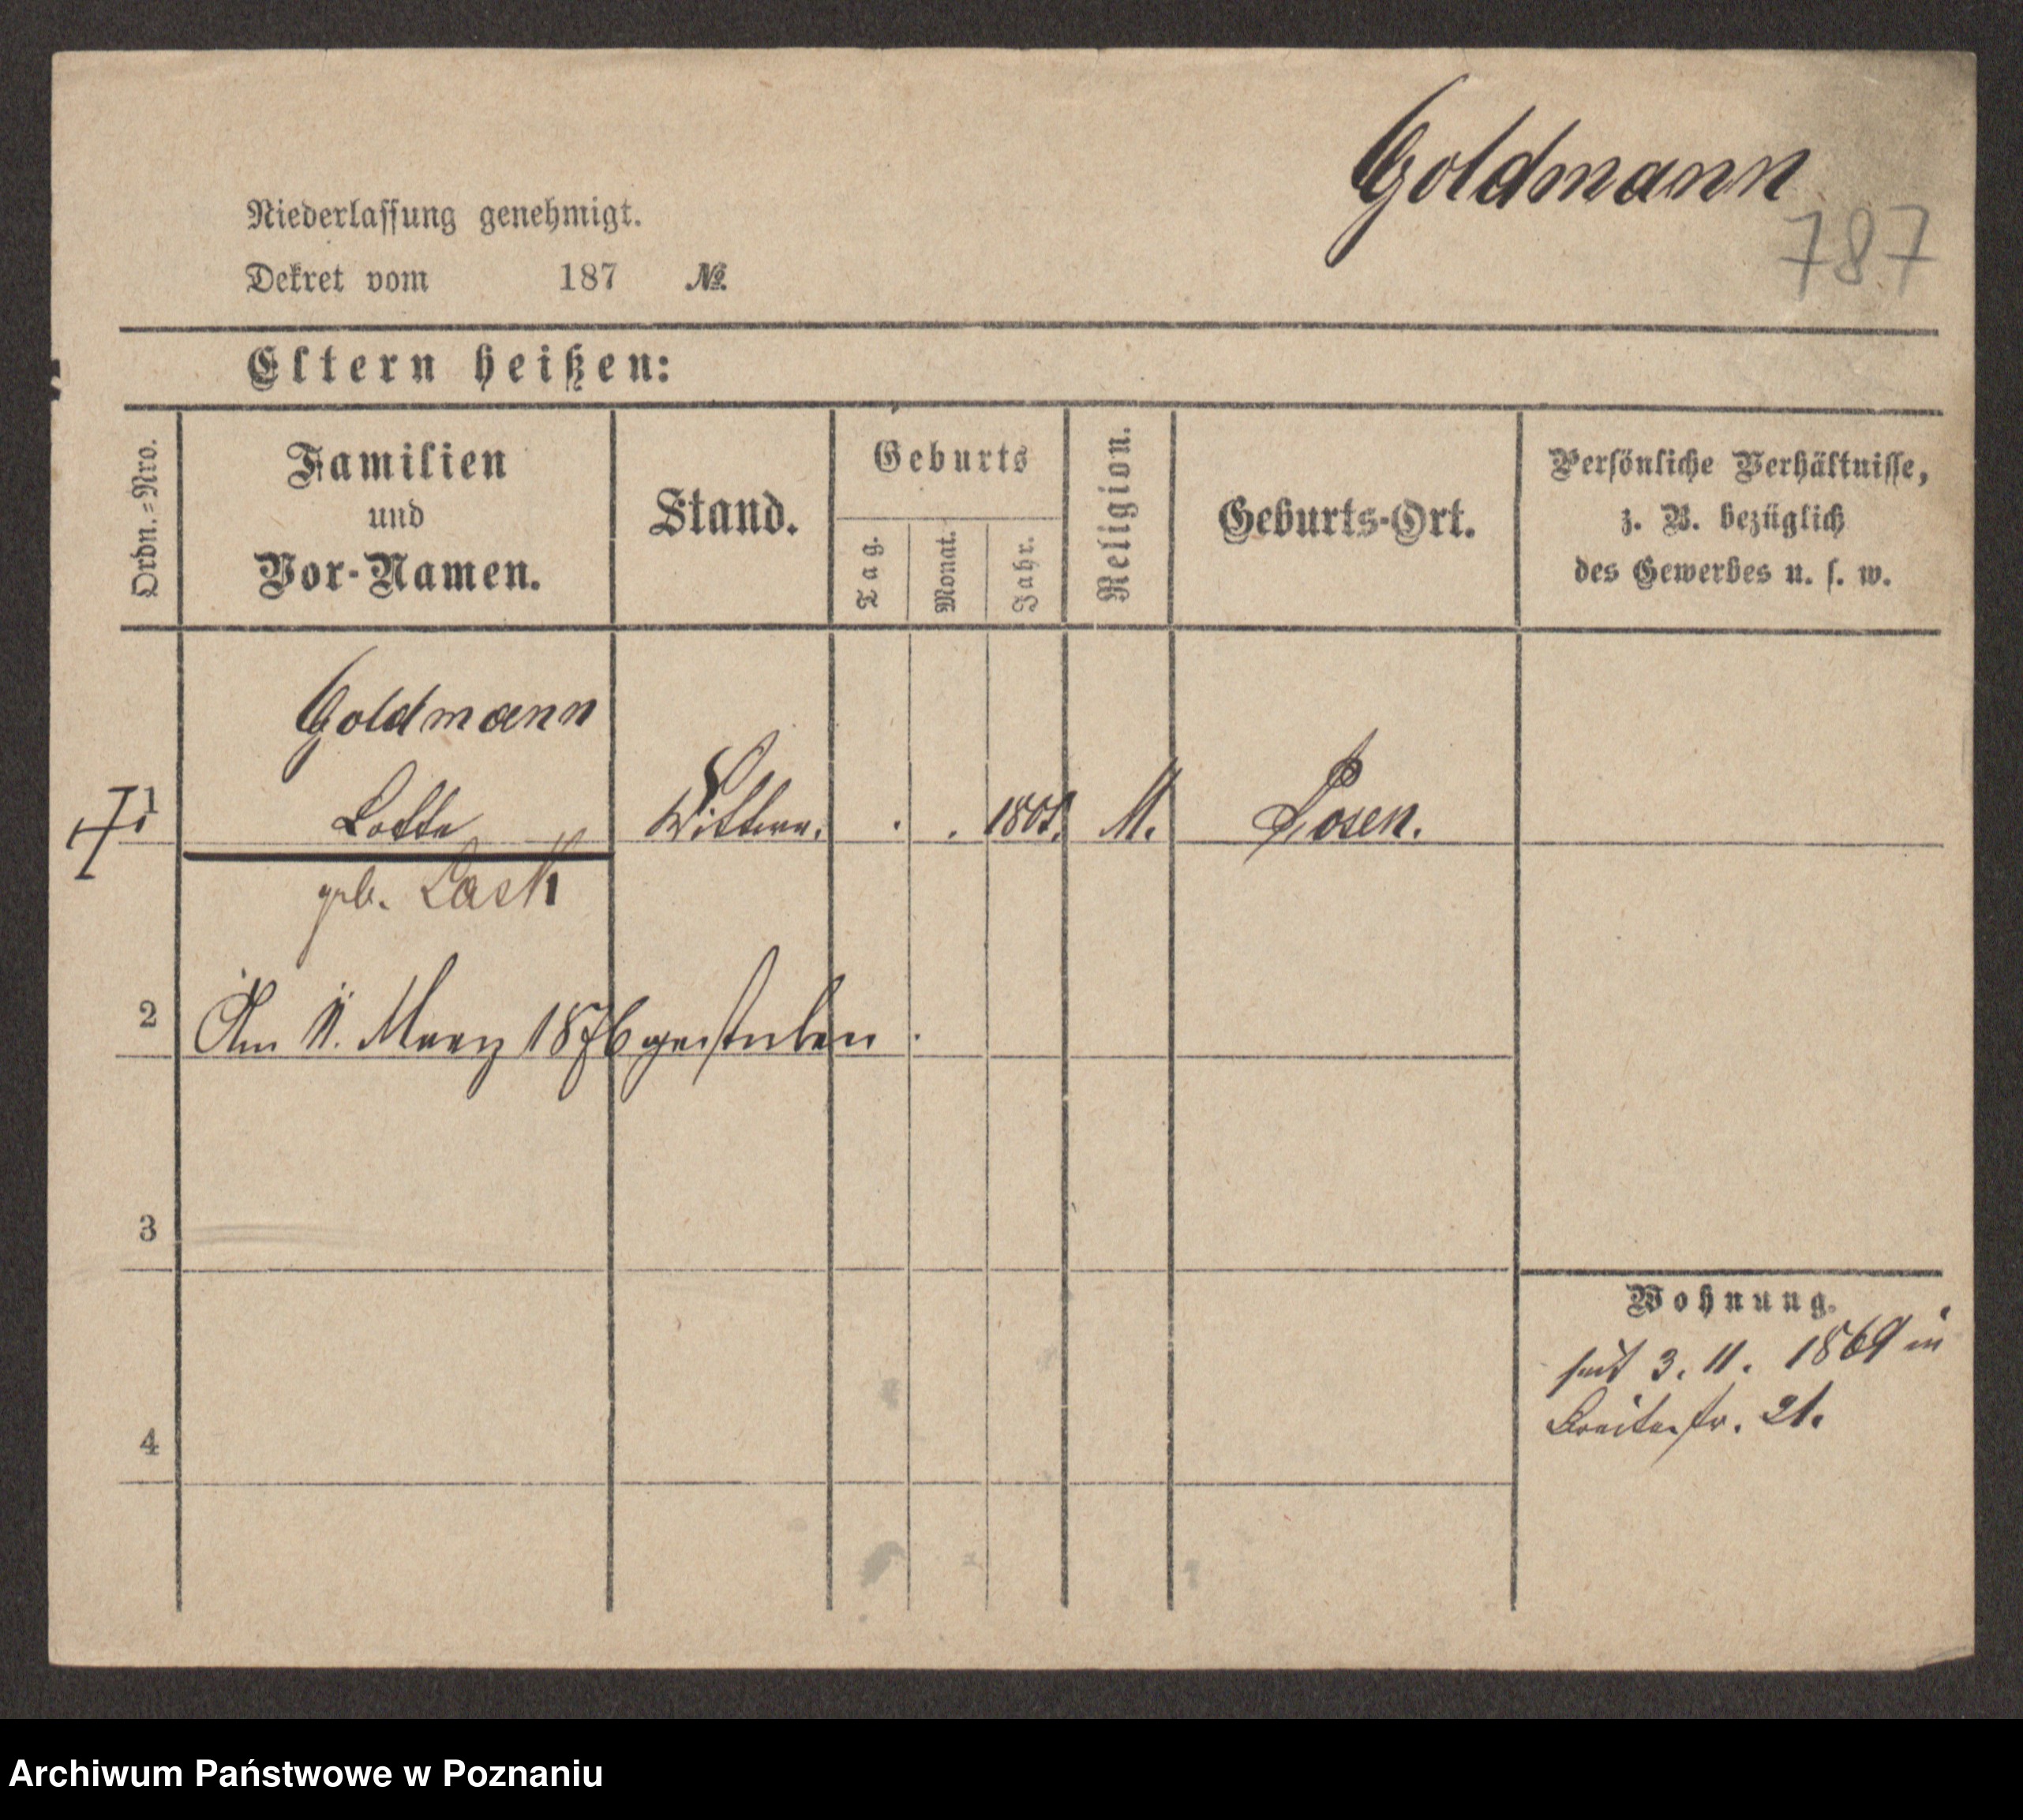 Goldmann
787
Niederlassung genehmigt.
Dekret vom 187 №
Eltern heißen:
Ordn.=Nro.
Familien
und
Vor-Namen.
Stand.
Geburts
Tag.
Monat.
Jahr.
Religion.
Geburts-Ort.
Persönliche Verhältnisse,
z. B. bezüglich
des Gewerbes u. s. w.
Goldmann
1 Lotte Wittwe. . . 1801. M. Posen.
geb. Lask
2 Am 11. Maerz 1876 gestorben.
3
Wohnung.
seit 3. 11. 1869 in
Breitestr. 21.
4
Archiwum Państwowe w Poznaniu